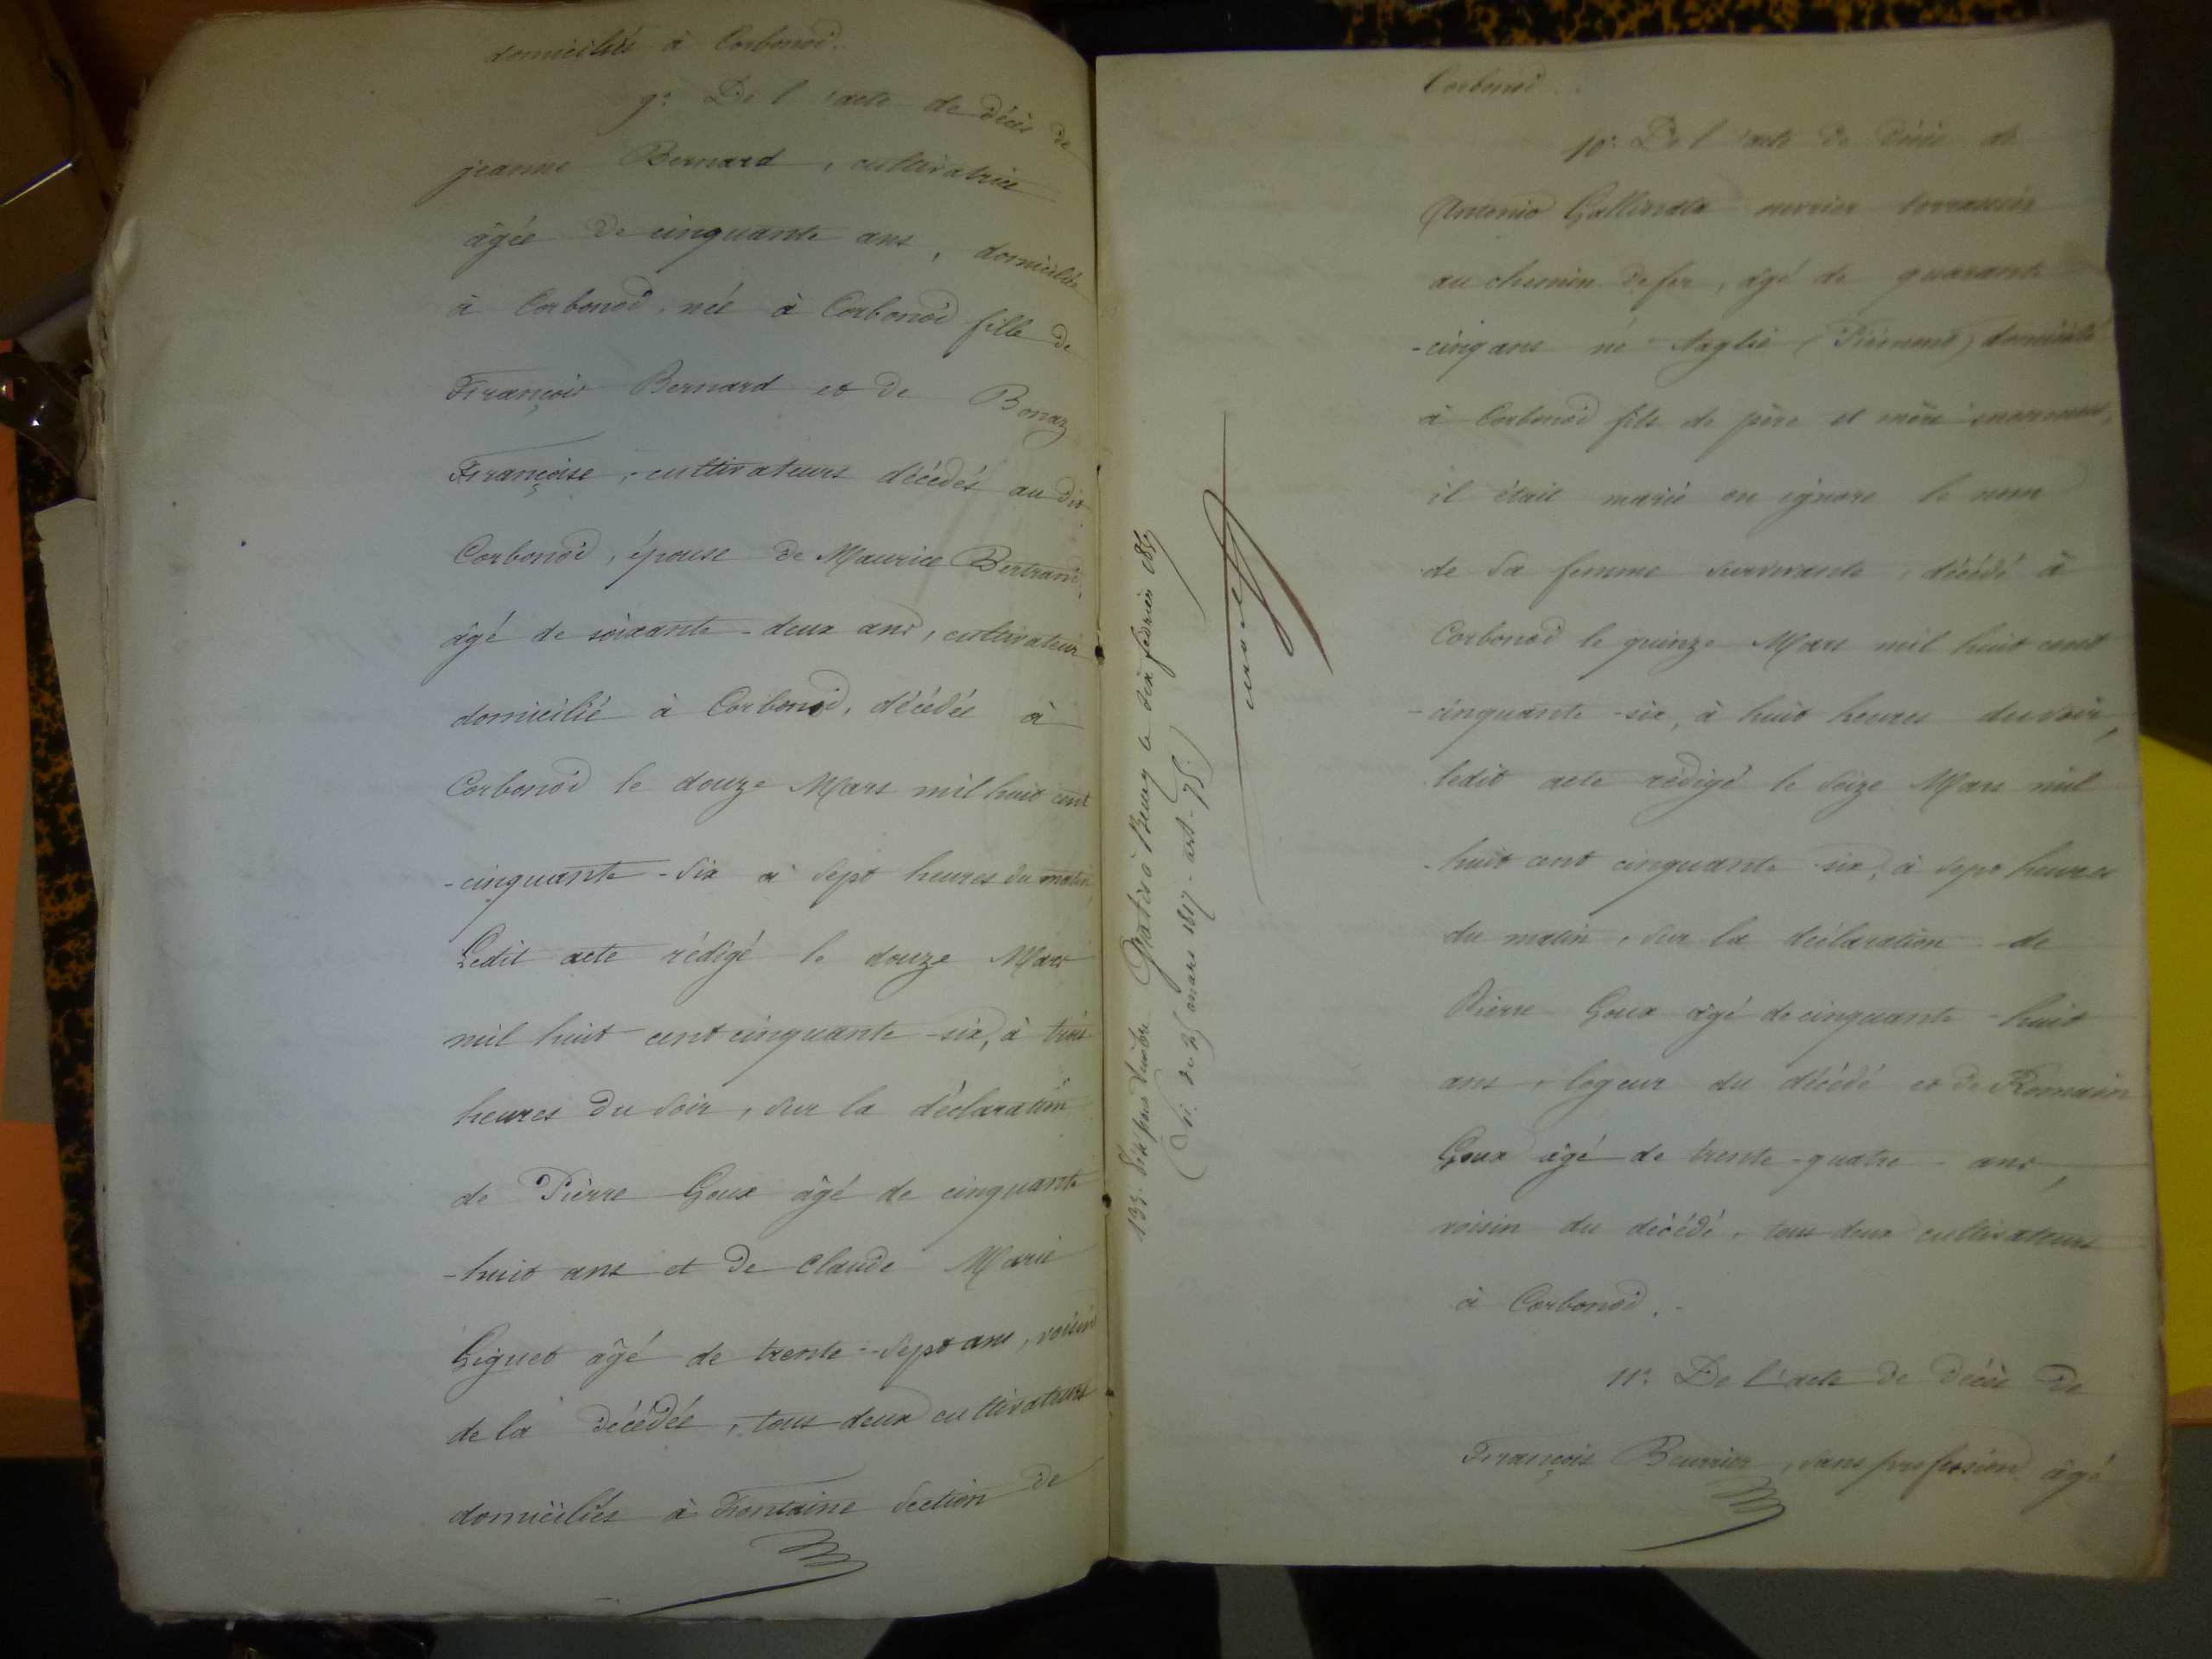 domiciliés à Corbonod.
9°. De l'acte de décès de
jeanne Bernard, cultivatrice
âgée de cinquante ans, domiciliée
à Corbonod, née à Corbonod fille de
François Bernard et de Bonaz
Françoise, cultivateurs décédés au dit
Corbonod, épouse de Maurice Bertrand
âgé de soixante-deux ans, cultivateur
domicilié à Corbonod, décédée à
Corbonod le douze Mars mil huit cent
-cinquante-six à sept heures du matin
Ledit acte rédigé le douze Mars
mil huit cent cinquante-six, à trois
heures du soir, sur la déclaration
de Pierre Goux âgé de cinquante
-huit ans et de Claude Marie
Giguet âgé de trente-sept ans, voisins
de la décédée, tous deux cultivateurs
domiciliés à Fontaine section de
133. Visé pour timbre Gratis à le dix février
(Loi du 25 mars 1817 - art - 75.)
Corbonod.
10°. De l'acte de décès de
Antonio ouvrier terrassier
au chemin de fer, âgé de quarante
-cinq ans né Aaglié (Piémont) domicilié
à Corbonod fils de père et mère inconnus,
il était marié on ignore le nom
de sa femme survivante, décédé à
Corbonod le quinze Mars mil huit cent
-cinquante-six, à huit heures du soir,
ledit acte rédigé le seize Mars mil
huit cent cinquante-six, à sept heures
du matin, sur la déclaration de
Pierre Goux âgé de cinquante-huit
ans, logeur du décédé et de Romain
Goux âgé de trente-quatre ans,
voisin du décédé, tous deux cultivateurs
à Corbonod.-
11°. De l'acte de décès de
François Beurrier, sans profession âgé